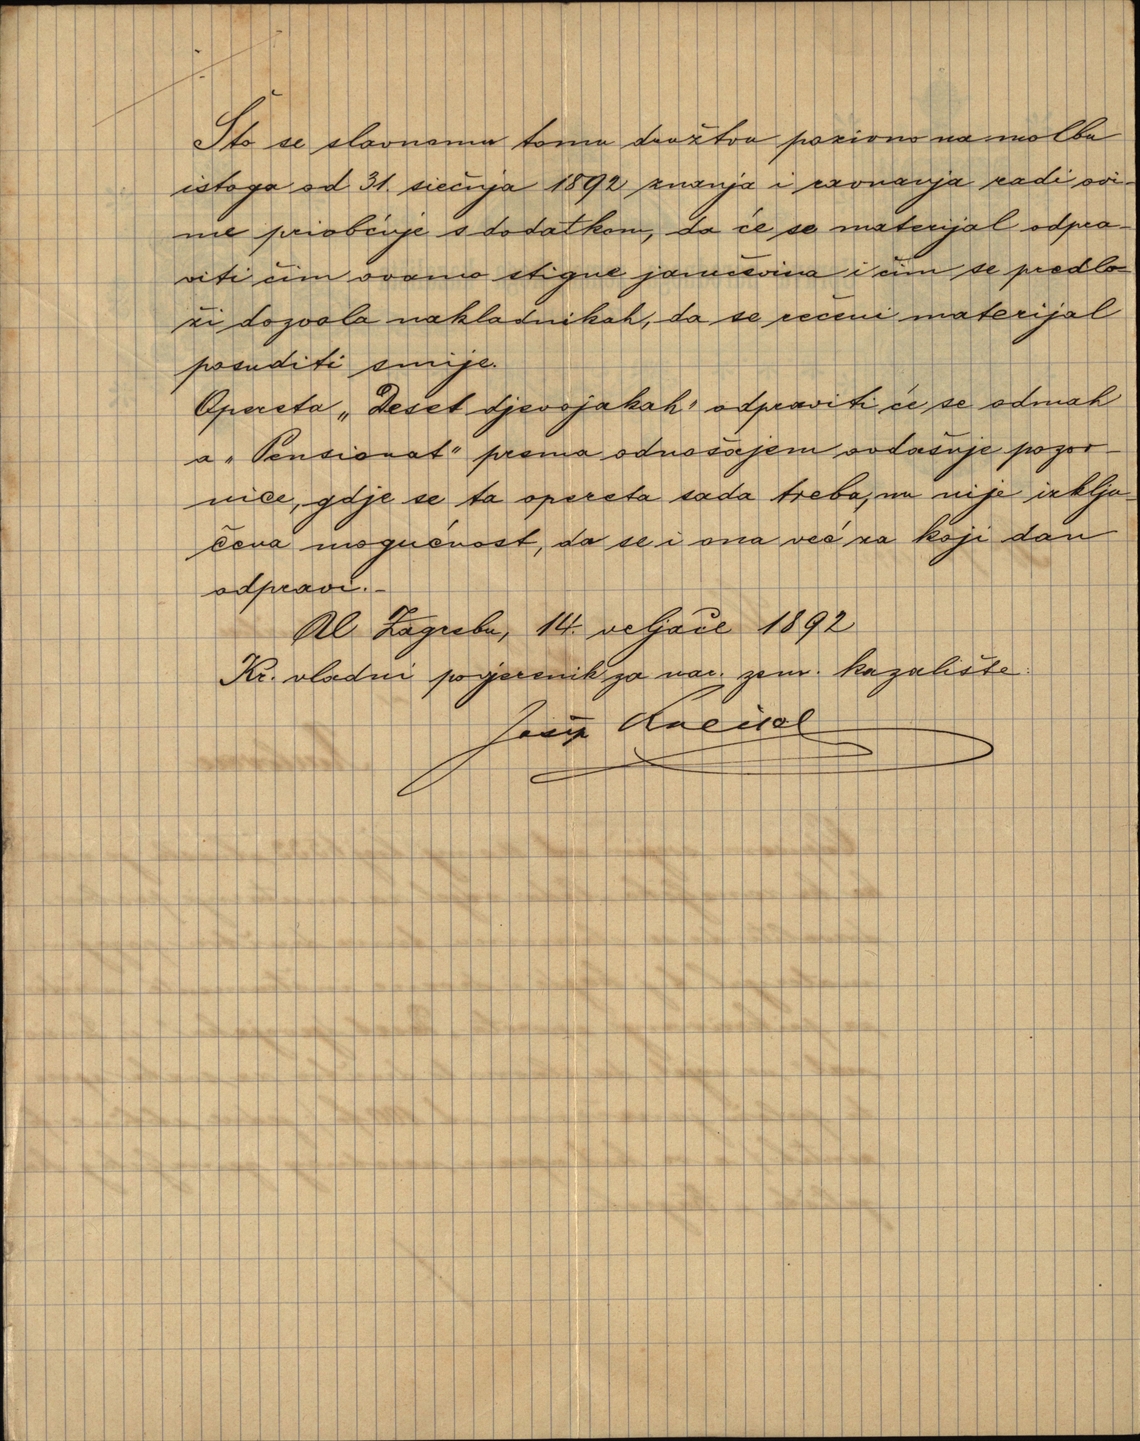 Što se slavnomu tomu družtvu pozivno na molbu
istoga od 31. siečnja 1892 znanja i ravnanja radi ovi-
me priobćuje s dodatkom, da će se materijal odpra-
viti čim ovamo stigne jamčevina i čim se predlo-
ži dozvola nakladnikah, da se rečeni materijal
posuditi smije.
Opereta „Deset djevojakah" odpraviti će se odmah
a „Pensionat" prema odnošajem ovdašnje pozor-
nice, gdje se ta opereta sada treba, nu nije izklju-
čena mogućnost, da se i ona već za koji dan
odpravi.-
U Zagrebu, 14. veljače 1892
Kr. vladni povjerenik za nar. zem. kazalište:
Josip